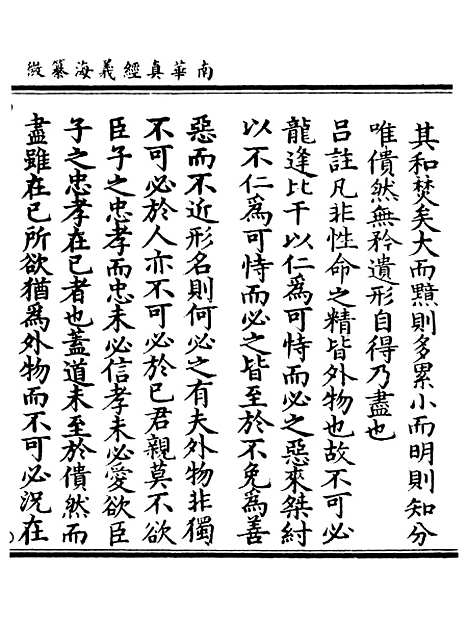 南華真經義海纂微
其和焚矣大而䵝則多累小而明則知分
唯僓然無矜遺形自得乃盡也
吕註凡非性命之精皆外物也故不可必
龍逢比干以仁爲可恃而必之惡來桀紂
以不仁爲可恃而必之皆至於不免爲善
惡而不近形名則何必之有夫外物非獨
不可必於人亦不可必於已君親莫不欲
臣子之忠孝而忠未必信孝未必愛欲臣
子之忠孝在已者也蓋道未至於僓然而
盡雖在已所欲猶爲外物而不可必況在